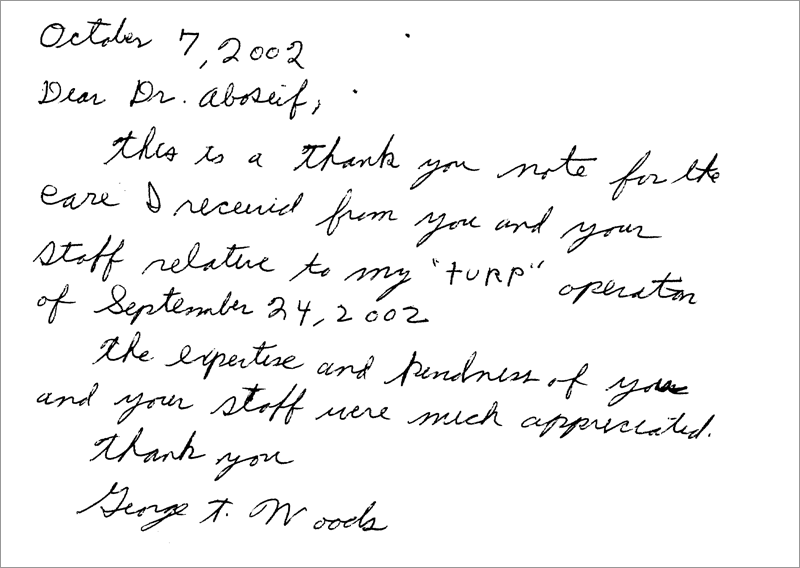 October 7, 2002
Dear Dr. Aboseif,
this is a thank you note for the
care I received from you and your
staff relative to my "TURP" operation
of September 24, 2002
the expertise and kindness of you
and your staff were much appreciated.
thank you
George T. Woods